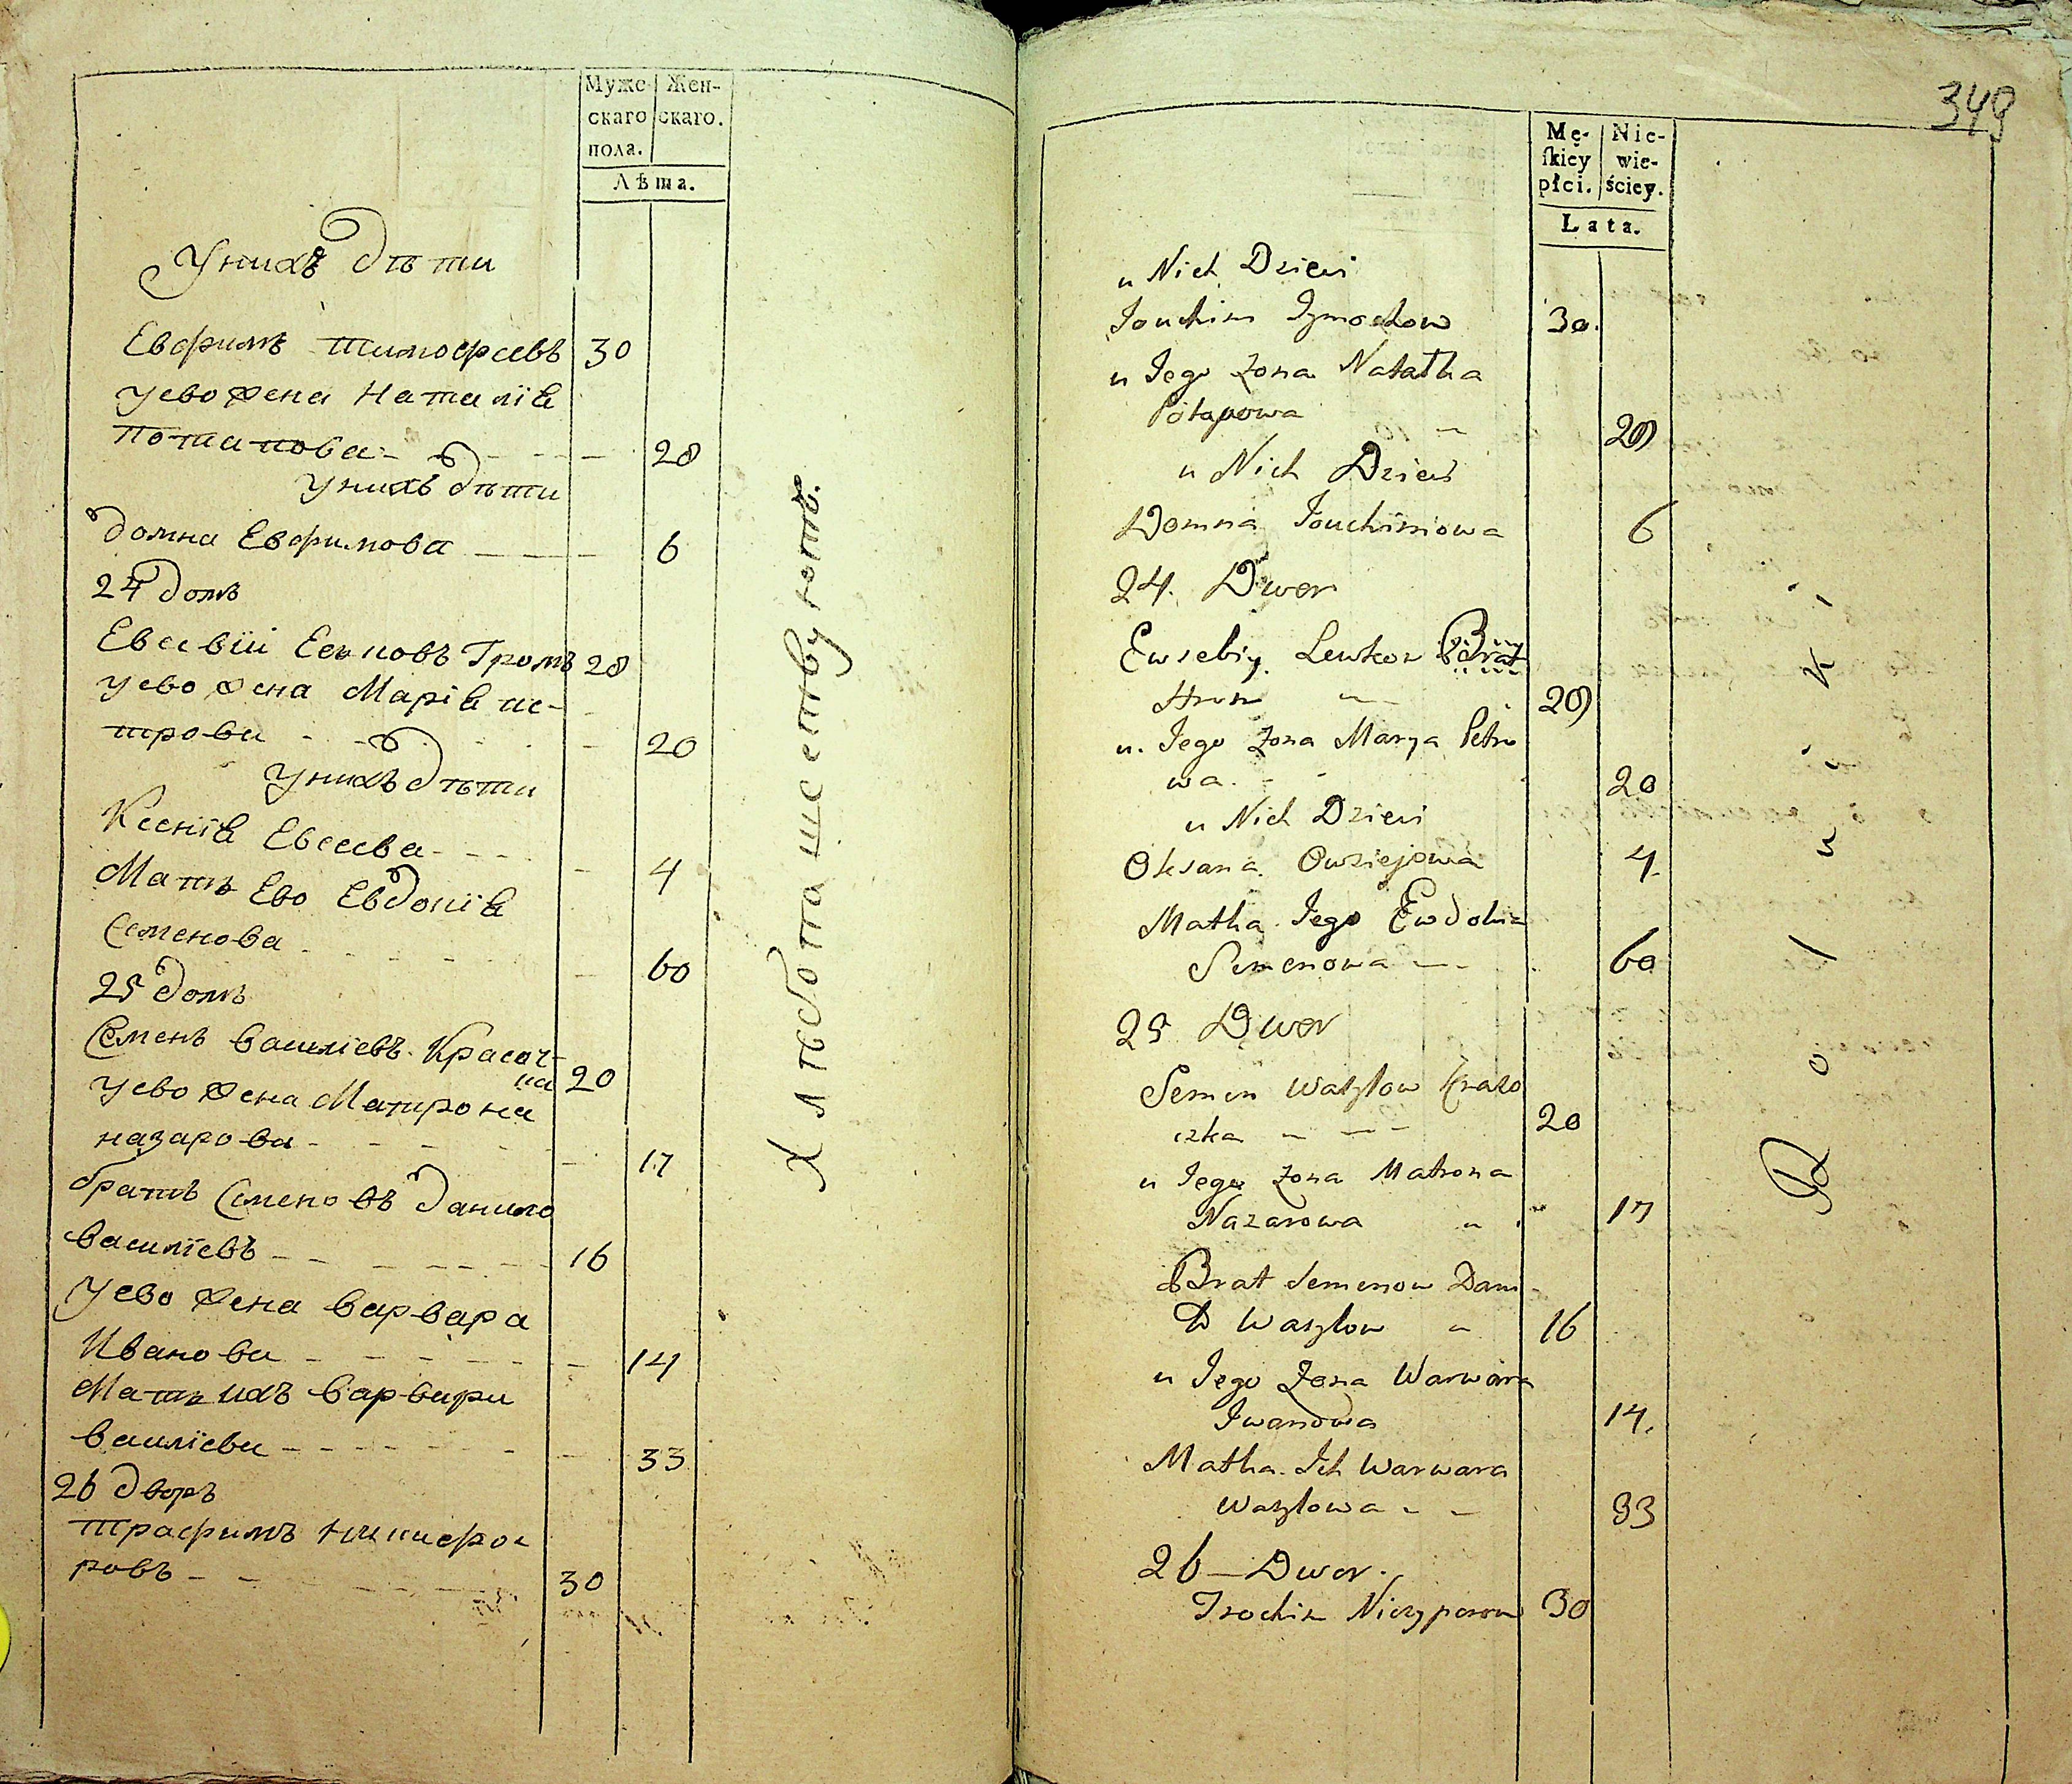 Муже- Жен-
скаго скаго.
пола.
Лѣта.
Унихъ дѣти
Евфимъ Тимофеевъ 30
уево жена Наталія
Потапова 28
унихъ дѣти
Домна Евфимова 6
24 домъ
Евсевій Громъ 28
уево жена Марія пе-
трова 20
унихъ дѣти
Ксенія Евсеева 4
Мать Ево Евдокія
Семенова 60
25 домъ
Семенъ Василіевъ Красоч-
ка 20
уево жена Матрона
назарова 17
братъ Семеновъ Данило
Василіевъ 16
уево жена варвара
Иванова 14
Мать ихъ варвара
василіева 33
26 дворъ
Трафимъ Никифо-
ровъ 30
Хлѣбопашествуютъ.
349
Mę- Nie-
skiey wie-
płci. ściey.
Lata.
u Nich Dzieci
Jouchim Tymochow 30.
u Jego Zona Natalka
Potapowa 28
u Nich Dzieci
Domna Jouchimowa 6
24. Dwor
Ewsebiy Lewkow Brat
Hrom 28
u. Jego Zona Marya Petro
wa. 20
u Nich Dzieci
Oksana Owsiejowa 4.
Matka Jego Ewdokia
Semenowa 60
25 Dwor
Semen Wasylow Kraso
czka 20
u Jego Zona Matrona
Nazarowa 17
Brat Semenow Dani
ło Wasylow 16
u Jego Zona Warwara
Iwanowa 14.
Matka Ich Warwara
Wasylowa 33
26 Dwor.
Trochim Niczyporow 30
Rolniki